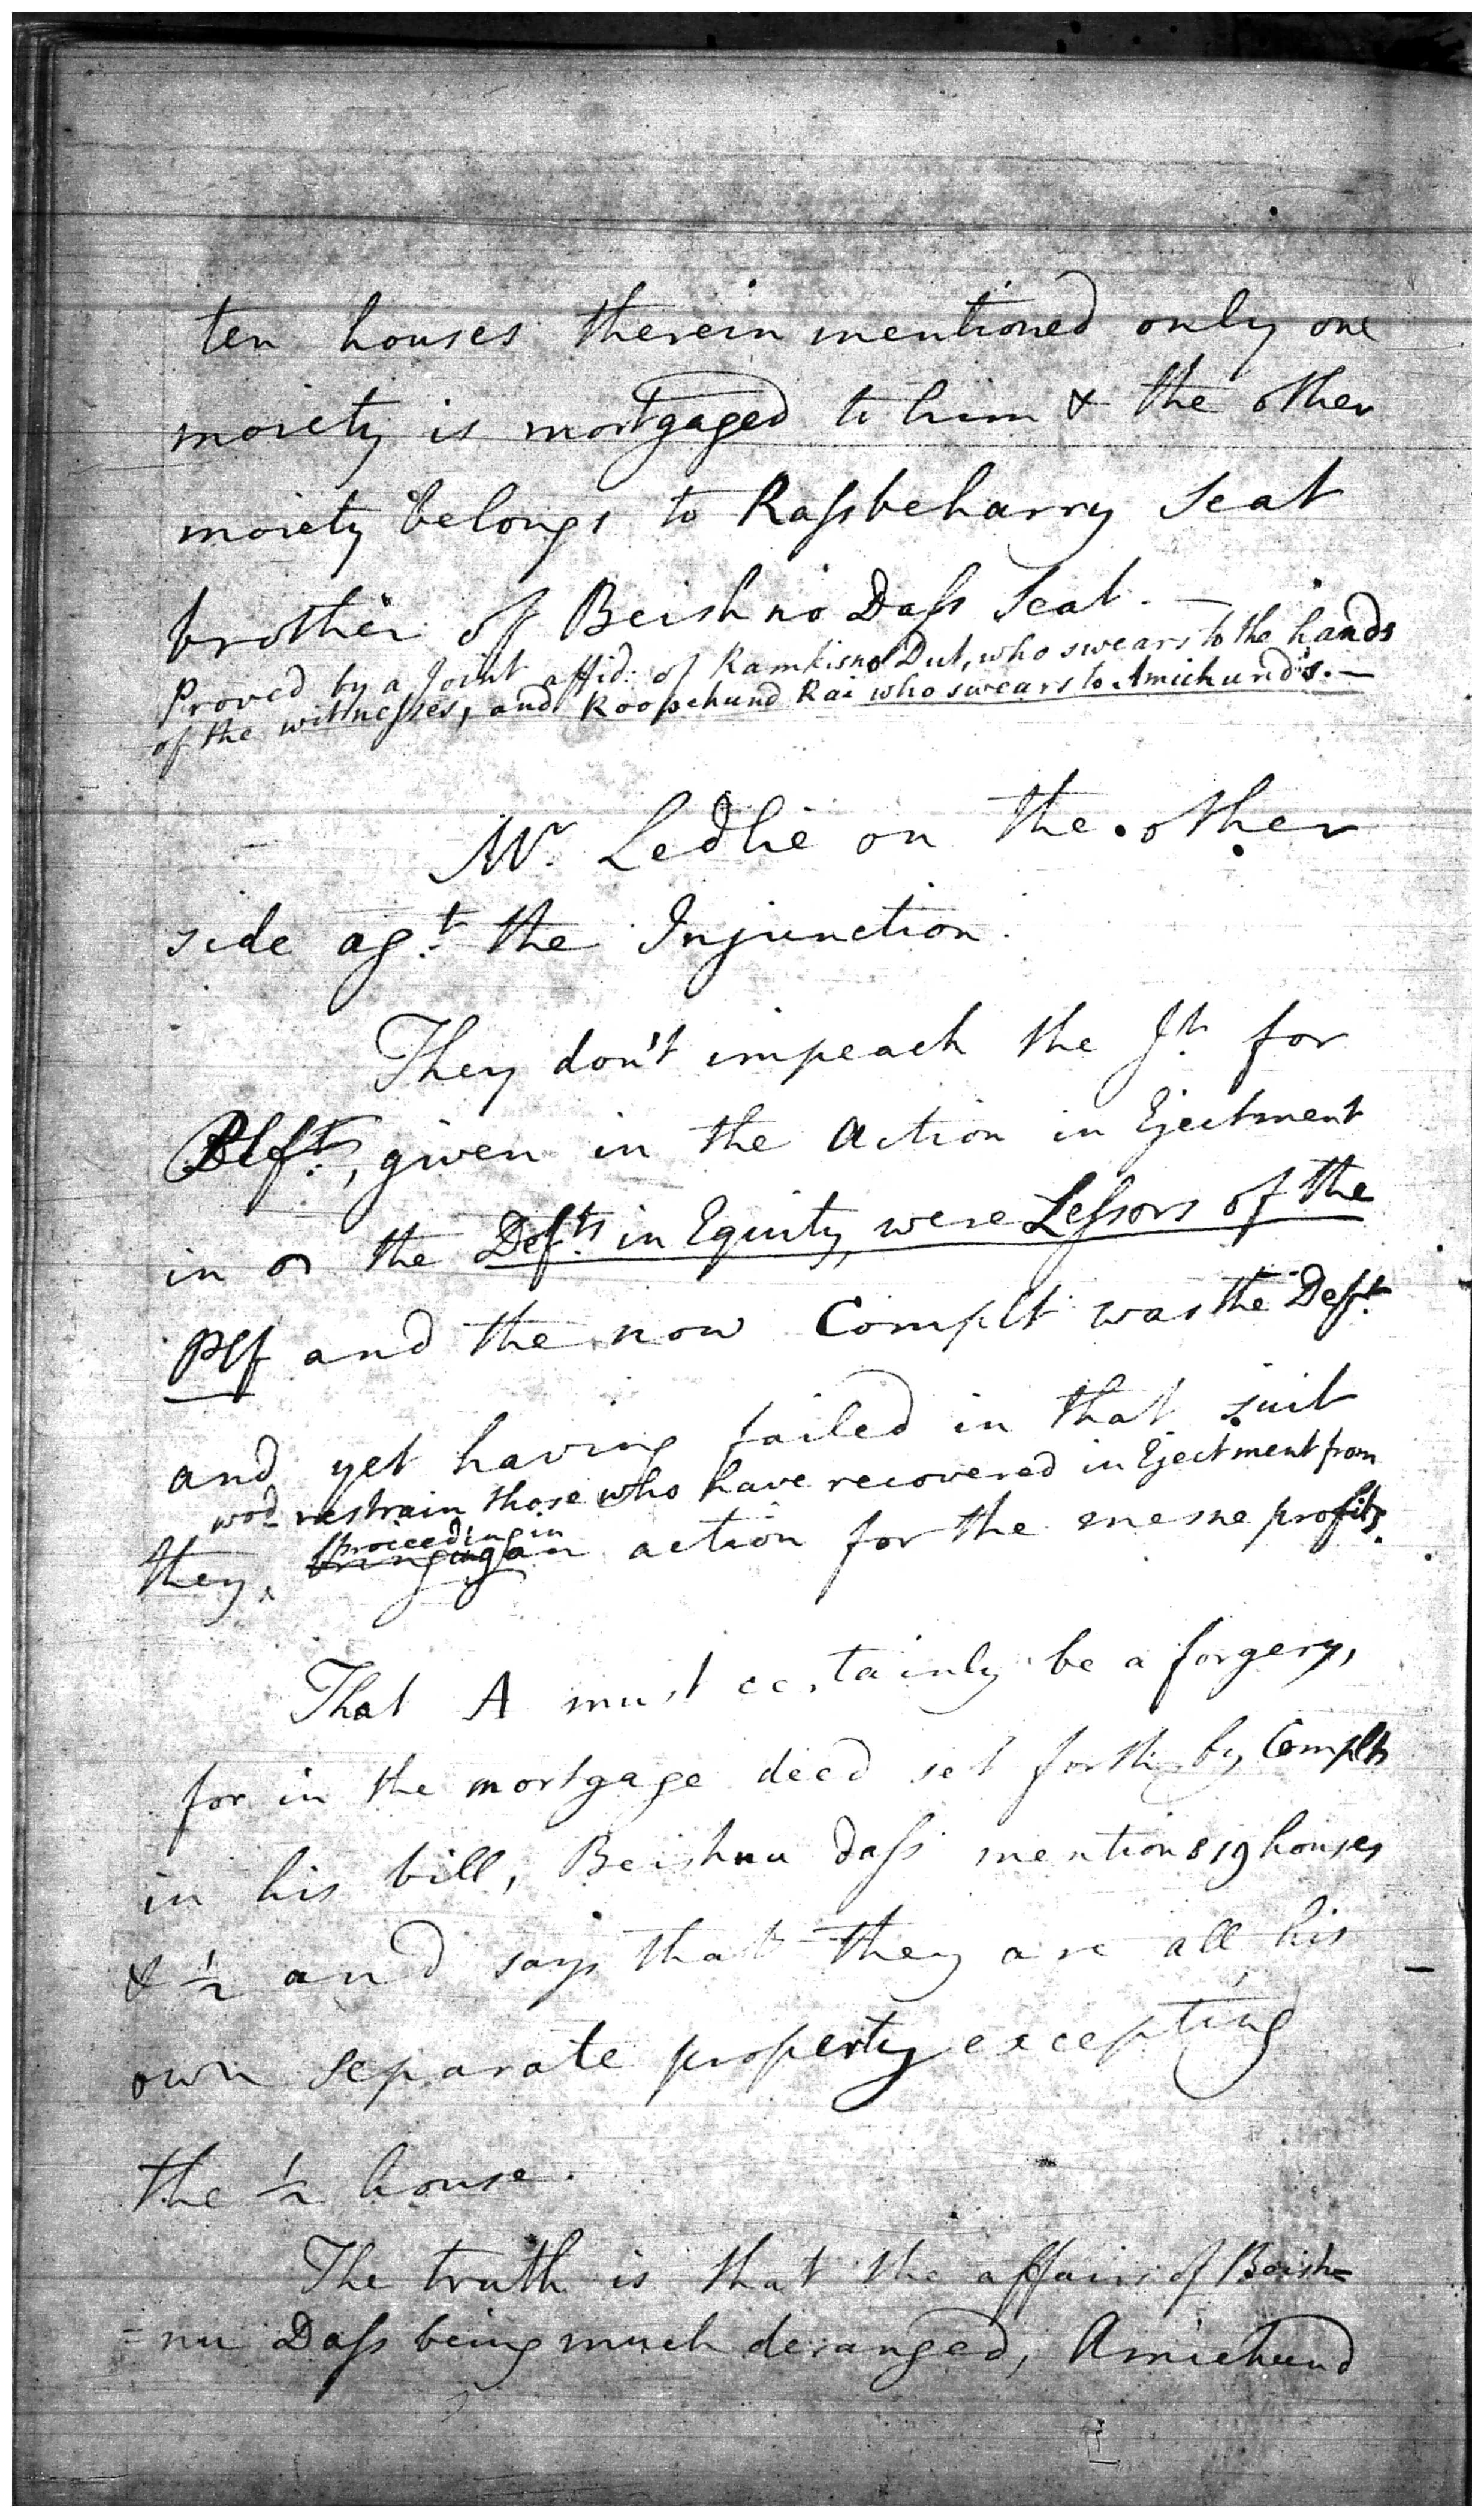 ten houses therein mentioned only one
moiety is mortgaged to him & the other
moiety belongs to Raſsbeharry Seat
brother of Beishno Daſs Seat. —
Proved by a Joint affid: of Ramkisno Dut, who swears to the hands
of the witneſses, and Roopchund Rai who swears to Amichund's. —
Mr. Ledlie on the other
side agt. the Injunction.
They don't impeach the Jt. for
Plfts., given in the Action in Ejectment
in the Defts. in Equity, were Leſsors of the
Plf and the now Complt was the Deft.
and yet having failed in that suit
wod. restrain those who have recovered in Ejectment from
proceeding in
they, bringing an action for the mesne profits.
That A must certainly be a forgery,
for in the mortgage deed set forth by Complt
in his bill, Beishnu Daſs mentions 19 houses
& ½ and says that they are all his
own separate property excepting
the ½ house.
The truth is that the affairs of Beish=
=nu Daſs being much deranged, Amichund